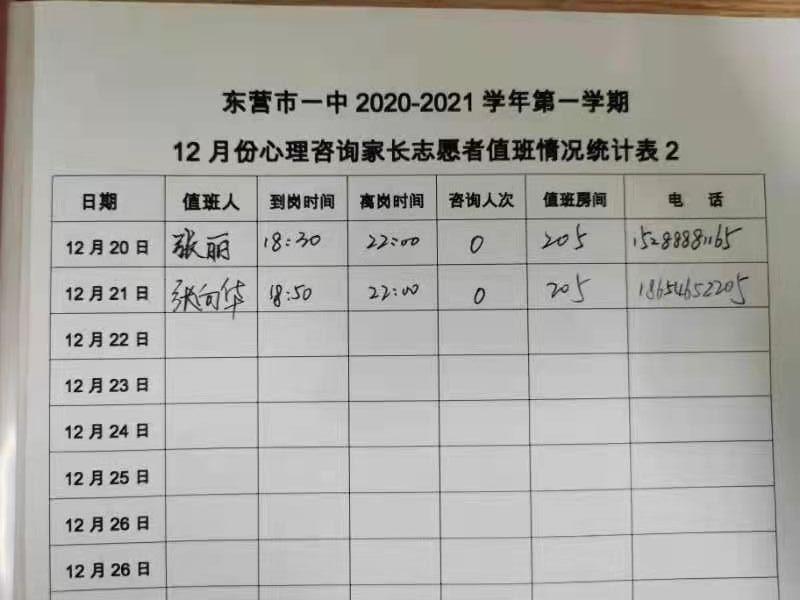 东营市一中 2020-2021 学年第一学期
12 月份心理咨询家长志愿者值班情况统计表 2
日期 值班人 到岗时间 离岗时间 咨询人次 值班房间 电 话
12 月 20 日 张丽 18:30 22:00 0 205 15288881165
12 月 21 日 张向华 18:50 22:00 0 205 18654652205
12 月 22 日
12 月 23 日
12 月 24 日
12 月 25 日
12 月 26 日
12 月 26 日